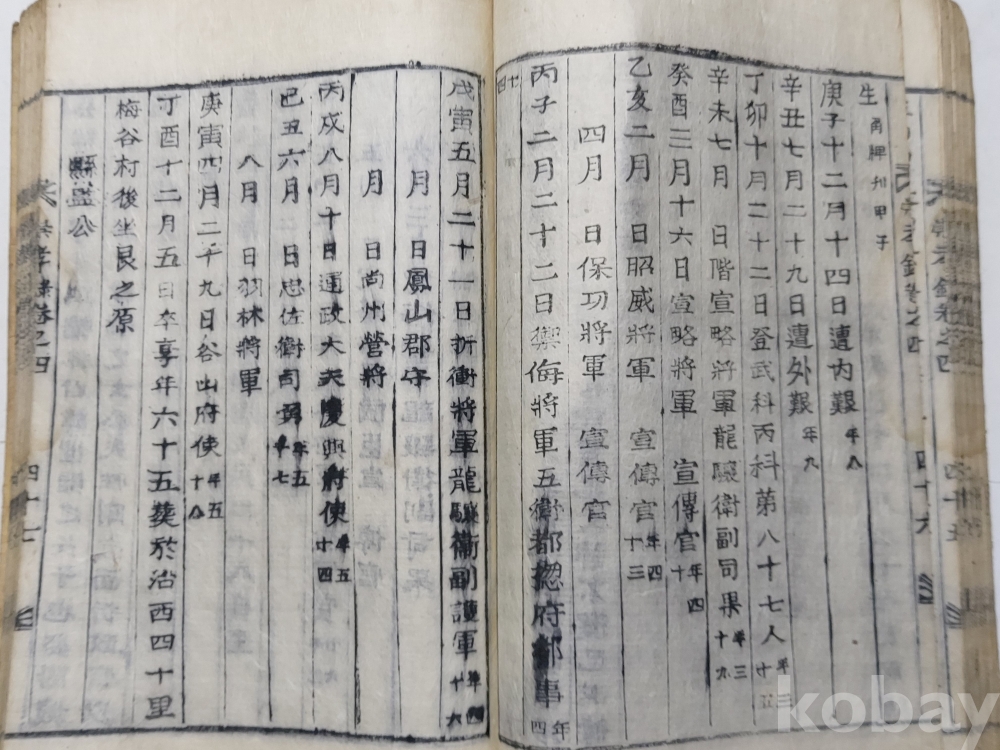 崇孝錄卷之四 四十六
生 甲子
庚子十二月十四日遭內艱 年八
辛丑七月二十九日遭外艱 年九
丁卯十月二十二日登武科丙科第八十七人 年三十五
辛未七月 日階宣略將軍龍驤衛副司果 年三十九
癸酉三月十六日宣略將軍 宣傳官 年四十
乙亥二月 日昭威將軍 宣傳官 年四十三
四月 日保功將軍 宣傳官
丙子二月二十二日禦侮將軍五衛都摠府都事 年四十四
戊寅五月二十一日折衝將軍龍驤衛副護軍 年四十六
六月 日鳳山郡守
月 日尚州營將
丙戌八月十日通政大夫慶興府使 年五十四
己丑六月 日忠佐衛司勇 年五十七
八月 日羽林將軍
庚寅四月二十九日谷山府使 年五十八
丁酉十二月五日卒享年六十五葬於治西四十里
梅谷村後坐艮之原
縣監公
崇孝錄卷之四 四十七
kobay